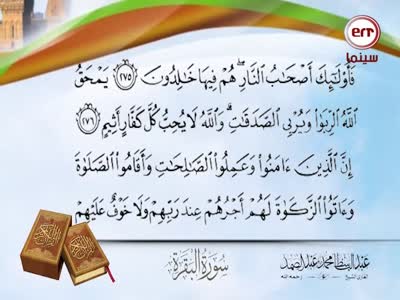 err
سينما
فَأُوْلَٰٓئِكَ أَصْحَٰبُ ٱلنَّارِ ۖ هُمْ فِيهَا خَٰلِدُونَ ٢٧٥ يَمْحَقُ
ٱللَّهُ ٱلرِّبَوٰا۟ وَيُرْبِى ٱلصَّدَقَٰتِ ۗ وَٱللَّهُ لَا يُحِبُّ كُلَّ كَفَّارٍ أَثِيمٍ ٢٧٦
إِنَّ ٱلَّذِينَ ءَامَنُوا۟ وَعَمِلُوا۟ ٱلصَّٰلِحَٰتِ وَأَقَامُوا۟ ٱلصَّلَوٰةَ
وَءَاتَوُا۟ ٱلزَّكَوٰةَ لَهُمْ أَجْرُهُمْ عِندَ رَبِّهِمْ وَلَا خَوْفٌ عَلَيْهِمْ
عبدالباسط محمد عبدالصمد
القارئ الشيخ
رحمه الله
سُورَةُ البَقَرَة